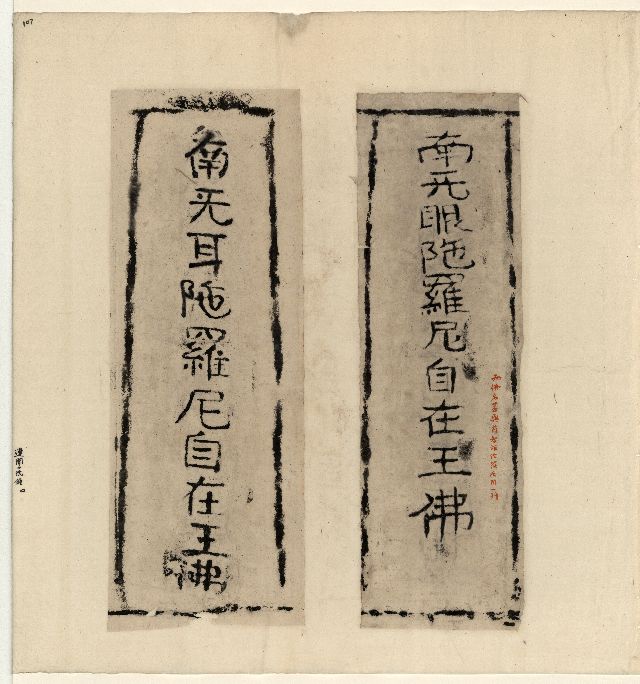 南无眼陁羅尼自在王佛
南无耳陁羅尼自在王佛
107